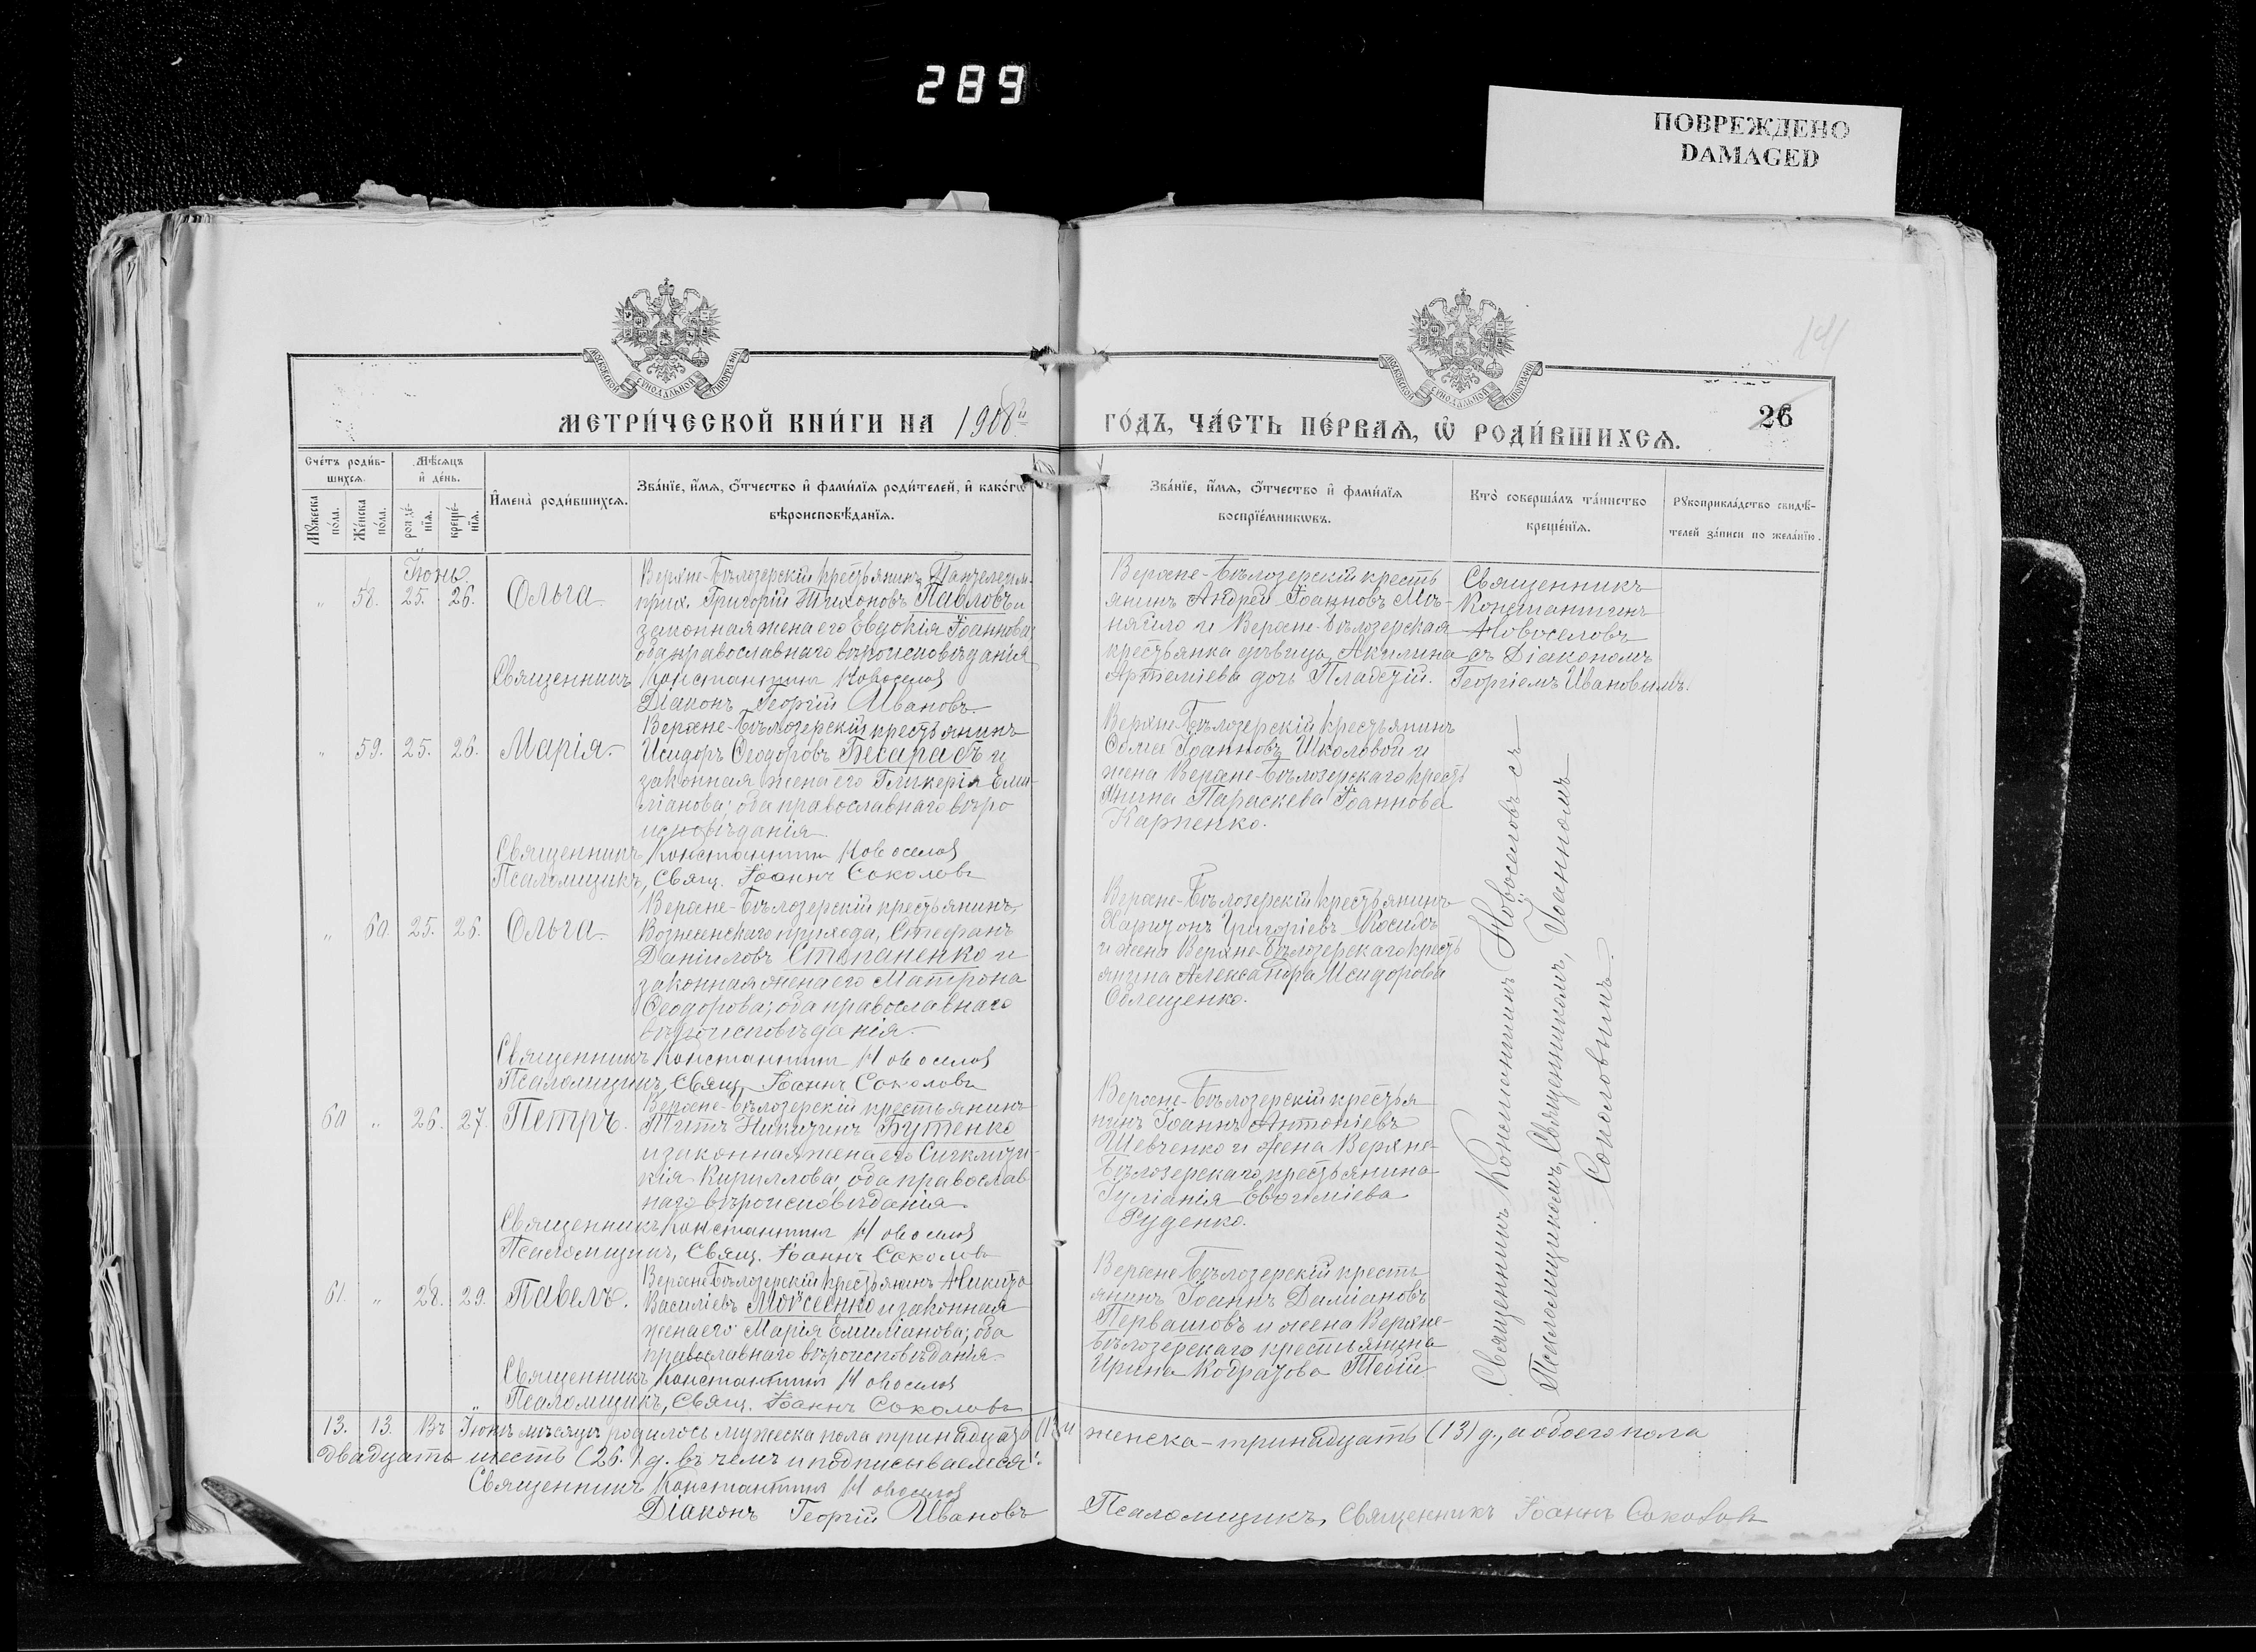 289
ПОВРЕЖДЕНО
DAMAGED
МОСКОВСКОЙ СѴНОДАЛЬНОЙ ТИПОГРАФІИ
МОСКОВСКОЙ СѴНОДАЛЬНОЙ ТИПОГРАФІИ
МЕТРИ́ЧЕСКОЙ КНИ́ГИ НА 1908й
ГО́ДЪ, ЧА́СТЬ ПЕ́РВАѦ, Ѡ҆ РОДИ́ВШИХСѦ.
26
Сче́тъ роди́в-
шихсѧ.
Мѣ́сѧцъ
и҆ де́нь.
Мꙋ́жеска
по́ла.
Же́нска
по́ла.
рожде́-
нїѧ.
креще́-
нїѧ.
И҆мена̀ роди́вшихсѧ.
Зва́нїе, и҆́мѧ, ѻ҆́тчество и҆ фами́лїѧ роди́телей, и҆ како́гѡ
вѣроисповѣ́данїѧ.
Зва́нїе, и҆́мѧ, ѻ҆́тчество и҆ фами́лїѧ
воспрїе́мникѡвъ.
Кто̀ соверша́лъ та́инство
креще́нїѧ.
Рꙋкоприкла́дство свидѣ́-
телей за́писи по жела́нїю.
Іюнь.
„ 58. 25. 26. Ольга
Верхне-Бѣлозерскій крестьянинъ, Пантелеим.
прих. Григорій Тихоновъ Павловъ и
законная жена его Евдокія Іоаннова;
оба православнаго вѣроисповѣданія
Священникъ Константинъ Новоселов
Діаконъ Георгій Ивановъ
Верхне-Бѣлозерскій кресть
янинъ Андрей Іоанновъ
и Верхне-Бѣлозерская
крестьянка дѣвица Акилина
Артеміева дочь
Священникъ
Константинъ
Новоселовъ
съ Діакономъ
Георгіемъ Ивановымъ.
„ 59. 25. 26. Марія.
Верхне-Бѣлозерскій крестьянинъ
Исидоръ Ѳеодоровъ Бесарабъ и
законная жена его Гликерія Еми-
ліанова; оба православнаго вѣро
исповѣданія
Священникъ Константинъ Новоселов
Псаломщикъ, Свящ. Іоаннъ Соколовъ
Верхне-Бѣлозерскій крестьянинъ
Ѳома Іоанновъ Школовой и
жена Верхне-Бѣлозерскаго кресть
янина Параскева Іоаннова
Карпенко.
„ 60 25. 26. Ольга
Верхне-Бѣлозерскій крестьянинъ,
Вознесенскаго прихода, Стефанъ
Даніиловъ Степаненко и
законная жена его Матрона
Ѳеодорова; оба православнаго
вѣроисповѣданія.
Священникъ Константинъ Новоселов
Псаломщикъ, Свящ. Іоаннъ Соколовъ
Верхне-Бѣлозерскій крестьянинъ
Харитонъ Григоріевъ
и жена Верхне-Бѣлозерскаго кресть
янина Александра Исидорова
Облещенко.
60 „ 26. 27. Петръ.
Верхне-Бѣлозерскій крестьянинъ
Титъ Никитинъ Бутенко
и законная жена его Синклити-
кія Кириллова; оба православ
наго вѣроисповѣданія.
Священникъ Константинъ Новоселов
Псаломщикъ, Свящ. Іоаннъ Соколовъ
Верхне-Бѣлозерскій крестья
нинъ Іоаннъ Антоніевъ
Шевченко и жена Верхне-
Бѣлозерскаго крестьянина
Іуліанія Евѳиміева
Руденко.
61. „ 28. 29. Павелъ.
Верхне-Бѣлозерскій крестьянинъ Никита
Василіевъ Моисеенко и законная
жена его Марія Емиліанова; оба
православнаго вѣроисповѣданія.
Священникъ Константинъ Новоселов
Псаломщикъ, Свящ. Іоаннъ Соколовъ
Верхне-Бѣлозерскій кресть
янинъ Іоаннъ Даміановъ
Первашовъ и жена Верхне-
Бѣлозерскаго крестьянина
Ирина Кодратова
Священникъ Константинъ Новоселовъ съ
Псаломщикомъ, Священникомъ, Іоанномъ
Соколовымъ.
13. 13. Въ Іюнѣ мѣсяцѣ родилось мужеска пола тринадцать (13) и женска-тринадцать (13) д., а обоего пола
двадцать шесть (26.) д. въ чемъ и подписываемся:
Священникъ Константинъ Новоселов
Діаконъ Георгій Ивановъ
Псаломщикъ, Священникъ Іоаннъ Соколовъ